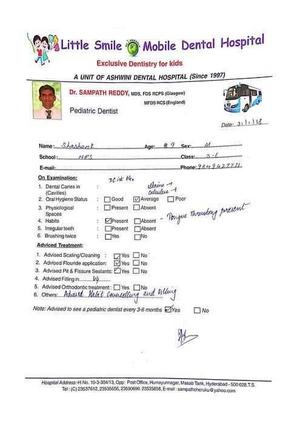 Little Smile Mobile Dental Hospital
Exclusive Dentistry for kids
A UNIT OF ASHWINI DENTAL HOSPITAL (Since 1997)
Dr. SAMPATH REDDY, MDS, FDS RCPS (Glasgow)
MFDS RCS (England)
Pediatric Dentist
Date:
Name: Shashank Age: # 9 Sex: M
School: Class:
E-mail: Phone:
On Examination:
1. Dental Caries in (Cavities)
2. Oral Hygiene Status : Good Average Poor
3. Physiological Spaces : Present Absent
4. Habits : Present Absent - Tongue thrusting present
5. Irregular teeth : Present Absent
6. Brushing twice : Yes No
Adviced Treatment:
1. Advised Scaling/Cleaning : Yes No
2. Advised Flouride application: Yes No
3. Advised Pit & Fissure Sealants: Yes No
4. Advised Filling in
5. Advised Orthodontic treatment : Yes No
6. Others: Advised Habit Counselling and
Note: Advised to see a pediatric dentist every 3-6 months Yes No
Hospital Address: H.No. 10-3-304/13, Opp: Post Office, Humayunnagar, Masab Tank, Hyderabad - 500 028. T.S.